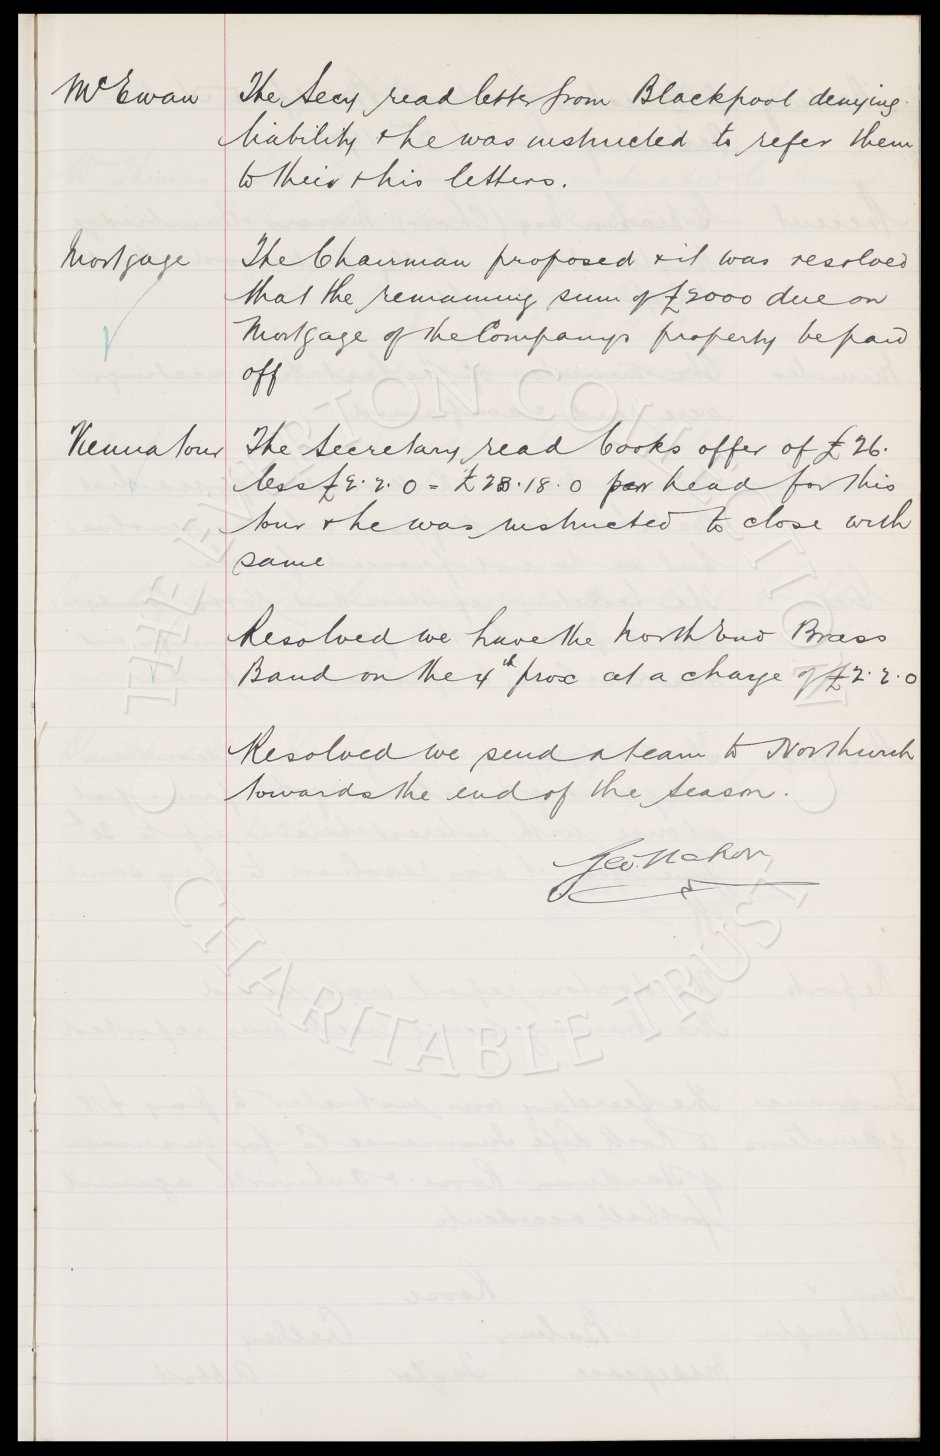 McEwan The Secy read letter from Blackpool denying
liability & he was instructed to refer them
to their & his letters.
Mortgage The Chairman proposed & it was resolved
that the remaining sum of £2000 due on
Mortgage of the Companys property be paid
off
Vienna tour The Secretary read Cooks offer of £26.
less £2.2.0 = £23.18.0 per head for this
tour & he was instructed to close with
same
Resolved we have the North End Brass
Band on the 4th prox at a charge of £2.2.0
Resolved we send a team to Northwich
towards the end of the season.
Geo. Mahon
THE EVERTON COLLECTION
CHARITABLE TRUST